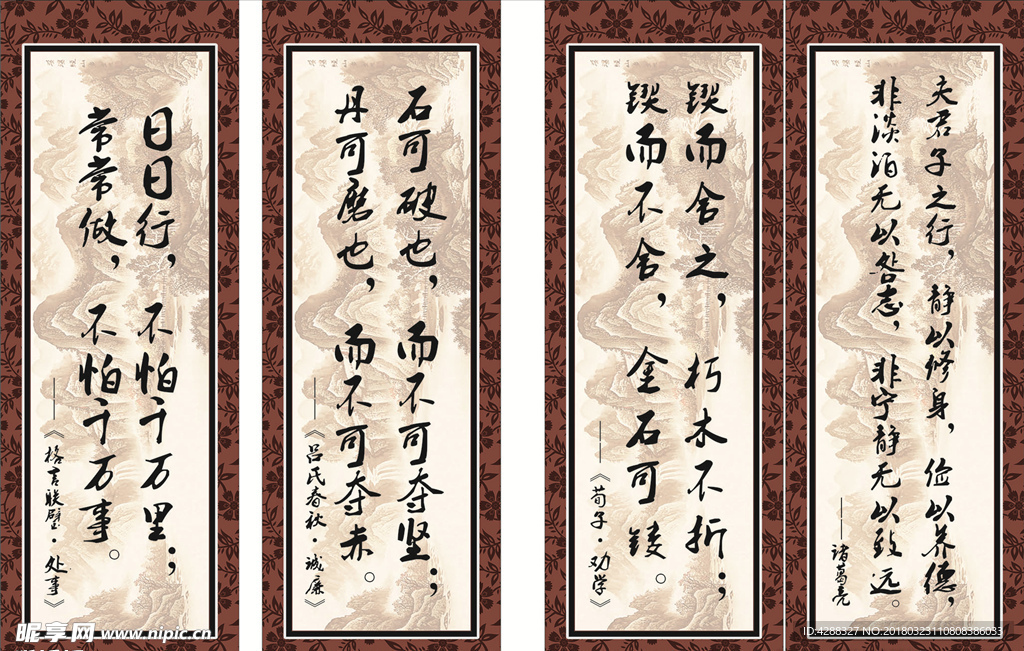 日日行，不怕千万里；
常常做，不怕千万事。
——《格言联璧·处事》
石可破也，而不可夺坚；
丹可磨也，而不可夺赤。
——《吕氏春秋·诚廉》
锲而舍之，朽木不折；
锲而不舍，金石可镂。
——《荀子·劝学》
夫君子之行，静以修身，俭以养德，
非淡泊无以咎志，非宁静无以致远。
——诸葛亮
昵享网 www.nipic.cn
ID:4288327 NO:20180323110808386033